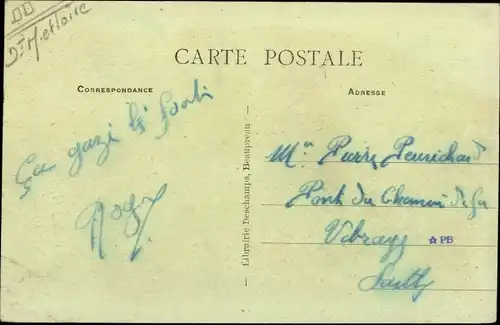 CARTE POSTALE
CORRESPONDANCE
ADRESSE
Ça gazi
Roger
Librairie Deschamps, Beaupreau
Mr Pierre Peurichard
Pont du Chemin de fer
Vibraye
PB
Sarthe